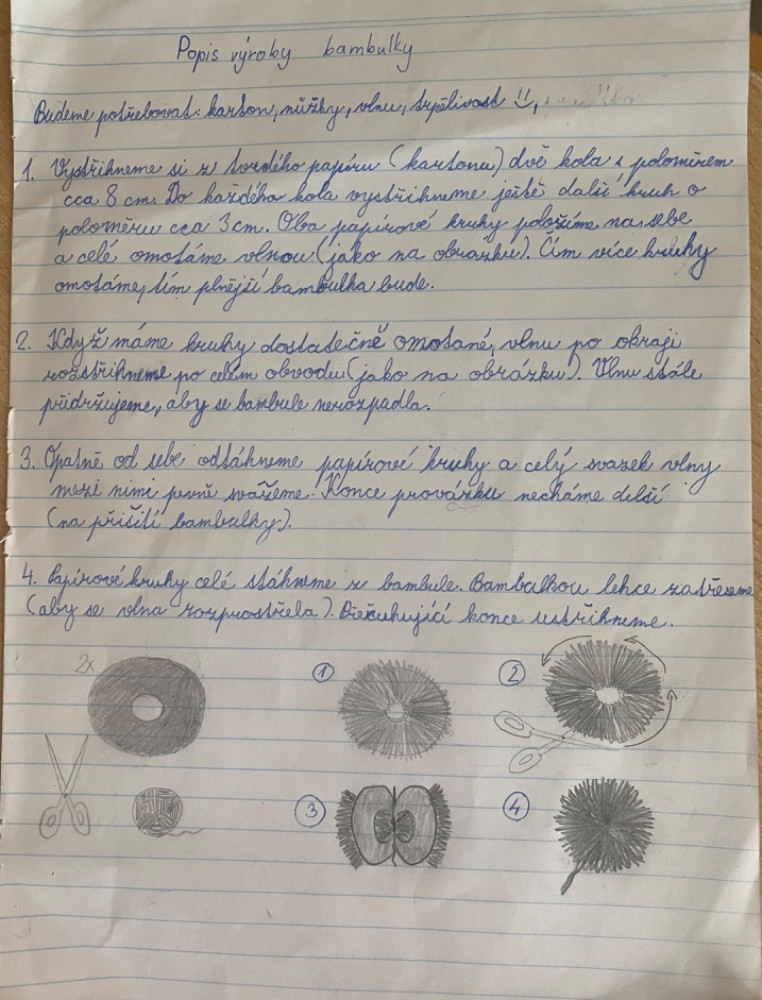 Popis výroby bambulky
Budeme potřebovat: karton, nůžky, vlnu, trpělivost !!,
1. Vystřihneme si z tvrdého papíru (kartonu) dvě kola s poloměrem
cca 8 cm. Do každého kola vystřihneme ještě další kruh o
poloměru cca 3 cm. Oba papírové kruhy položíme na sebe
a celé omotáme vlnou (jako na obrázku). Čím více kruhy
omotáme, tím plnější bambulka bude.
2. Když máme kruhy dostatečně omotané, vlnu po okraji
rozstřihneme po celém obvodu (jako na obrázku). Vlnu stále
přidržujeme, aby se bambule nerozpadla.
3. Opatrně od sebe odtáhneme papírové kruhy a celý svazek vlny
mezi nimi pevně svážeme. Konce provázku necháme delší
(na přišití bambulky).
4. Papírové kruhy celé stáhneme z bambule. Bambulkou lehce zatřeseme
(aby se vlna rozprostřela). Přečuhující konce ustřihneme.
2x
1
2
3
4